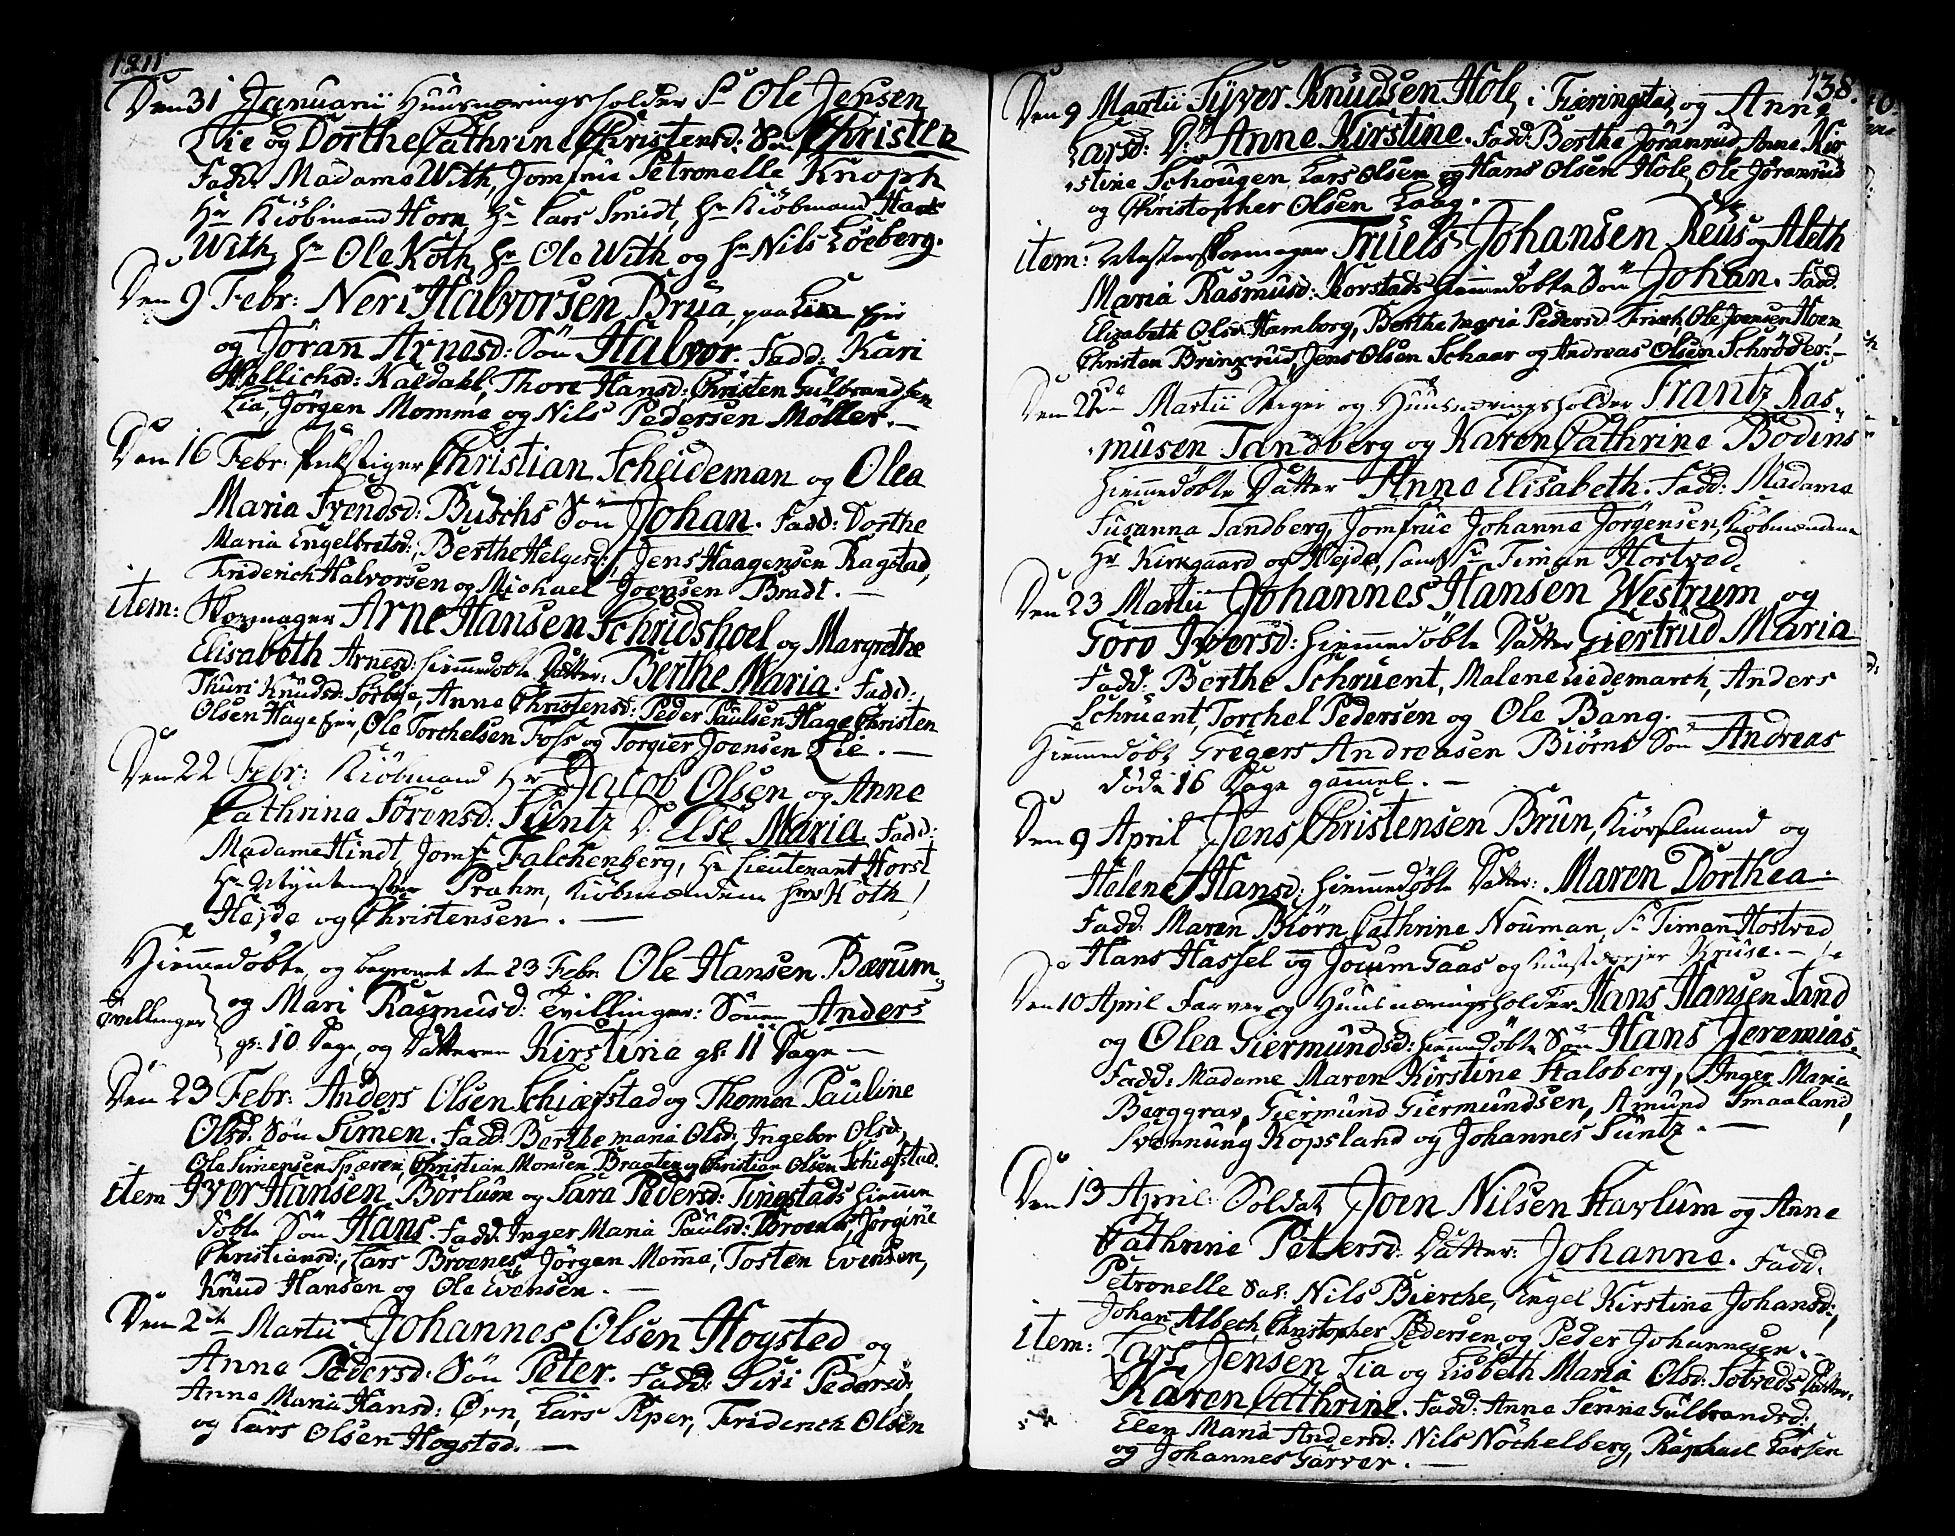 1811
Den 31 Januarii Huusnæringsholder Sr Ole Jensen
Lie og Dorthe Cathrine Christensd: Søn Christen
Fadd: Madame With, Jomfrue Petronelle Knoph
Hr Kiöbmand Horn, Hr Lars Smidt, Hr Kiöbmand Hans
With, Hr Ole Koth, Hr Ole With og Hr Nils Löeberg.
Den 9 Febr: Neri Halvorsen Brua, paa Lien
og Jöran Arnesd: Sön Halvor. Fadd: Kari
Hellichsd: Kaldahl, Thore Hansd: Christen Gulbrandsen
Lia, Jörgen Momme og Nils Pedersen Moller. —
Den 16 Febr: Christian Scheideman og Olea
Maria Svendsd: Buschs Sön Johan. Fadd: Dorthe
Maria Engelbretsd:, Berthe Helgesd:, Jens Haagensen Ragstad,
Friderich Halvorsen og Michael Joensen Bradt. —
item: Skomager Arne Hansen Schridshoel og Margrethe
Elisabeth Arnesd: hiemmedöbte Datter: Berthe Maria. Fadd:
Thuri Knudsd: Sorbye, Anne Christensd: Peder Paulsen Hage Christen
Olsen Hage, Ole Torchelsen Foss og Torgier Joensen Lie. —
Den 22 Febr: Kiöbmand Hr Jacob Olsen og Anne
Cathrina Sörensd: Suntz D: Else Maria. Fadd:
Madame Hindt, Jomf: Falchenberg, Hr Lieutenant Horst
Hr Myntmester Prahm, Kiöbmændene Hrr Koth,
Hejde og Christensen. —
Hiemmedöbte, og begravet den 23 Febr Ole Hansen Bærum
og Mari Rasmusd: Tvillinger: Sönnen Anders
Tvellinger
gl: 10 Dage, og Datteren Kirstine gl: 11 Dage —
Den 23 Febr: Anders Olsen Schiæfstad og Thomen Pauline
Olsd: Sön Simen. Fadd: Berthe maria Olsd:, Ingebor Olsd,
Ole Simensen Spæren, Christian Monsen Braaten og Christian Olsen Schiæfstad.
item Iver Hansen Börlum og Sara Pedersd: Tingstads hiemme
döbte Sön Hans. Fadd: Inger Maria Paulsd: Broenes, Jörgine
Christiansd:, Lars Broenes, Jörgen Momme, Tosten Evensen,
Knud Hansen og Ole Evensen. —
Den 2de Martii Johannes Olsen Hogsted og
Anne Pedersd: Sön Peter. Fadd: Siri Pedersd:,
Anne Maria Hansd: Örn, Lars Piper, Friderich Olsen
og Lars Olsen Hogsted. —
138.
Den 9 Martii Syver Knudsen Hole i Fieringstad, og Anne
Larsd: D: Anne Kirstine. Fadd: Berthe Jöranrud, Anne Kir
stine Schougen, Lars Olsen og Hans Olsen Hole, Ole Jöranrud
og Christopher Olsen Laag. —
item: Mesterskomager Truels Johansen Reus og Aleth
Maria Rasmusd: Korstads hiemmedöbte Sön Johan. Fadd.
Elizabeth Olsd: Hamborg, Berthe Maria Pedersd: Ole Joensen Hoen,
Christen Brinkrud, Jens Olsen Schaar og Andreas Olsen Schröder. —
Den 22de Martii og Huusnæringsholder Frantz Ras-
musen Tandberg og Karen Cathrine Bodins
hiemmedöbte Datter Anne Elisabeth. Fadd: Madame
Susanna Tandberg, Jomfrue Johanne Jörgensen, Kiöbmændene
Hr Kirkgaard og Hejde, samt Sr Timan Hostved.
Den 23 Martii Johannes Hansen Westrum og
Goro Iversd: hiemmedöbte Datter Giertrud Maria
Fadd: Berthe Schruent, Malene Liedemarch, Anders
Schruent, Torchel Pedersen og Ole Bang.
Hiemmedöbt Gregers Andreasen Biörns Sön Andreas
döde 16 Dage gammel. —
Den 9 April Jens Christensen Brun, og
Helene Hansd: hiemmedöbte Datter: Maren Dorthea.
Fadd: Maren Biörn, Cathrine Nouman, Sr Timan Hostved
Hans Hassel og Jocum Gaas og Kruse. —
Den 10 April Farver og Huusnæringsholder Hans Hansen Sand
og Olea Giermundsd: hiemmedöbte Sön Hans Jeremias.
Fadd: Madame Maren Kirstine Halsberg, Inger Maria
Berggrav, Giermund Giermundsen, Amund Smaaland,
Svennung Kopsland og Johannes Suntz. —
Den 13 April: Soldat Joen Nilsen Havlum og Anne
Cathrine Petersd: Datter: Johanne. Fadd.
Petronelle Sal: Nils Bierche, Engel Kirstine Johansd:,
Johan Albech, Christopher Pedersen, og Peder Johannesen. —
item: Lars Jensen Lia og Lisbeth Maria Olsd: Sobreds Datter:
Karen Cathrine. Fadd: Anne Senne Gulbrandsd:,
Elen Maria Andersd: Nils Nöchelberg, Raphael Larsen
og Johannes Garver. —